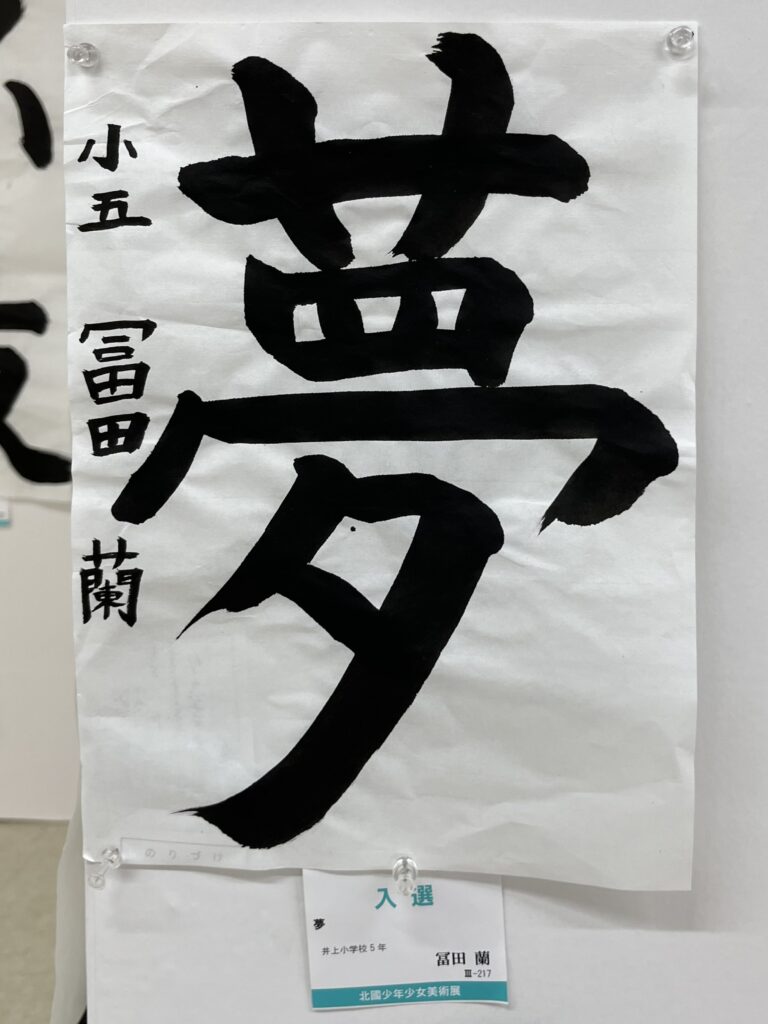 夢
小五 冨田 蘭
のりづけ
入選
夢
井上小学校5年
冨田 蘭
Ⅲ-217
北國少年少女美術展